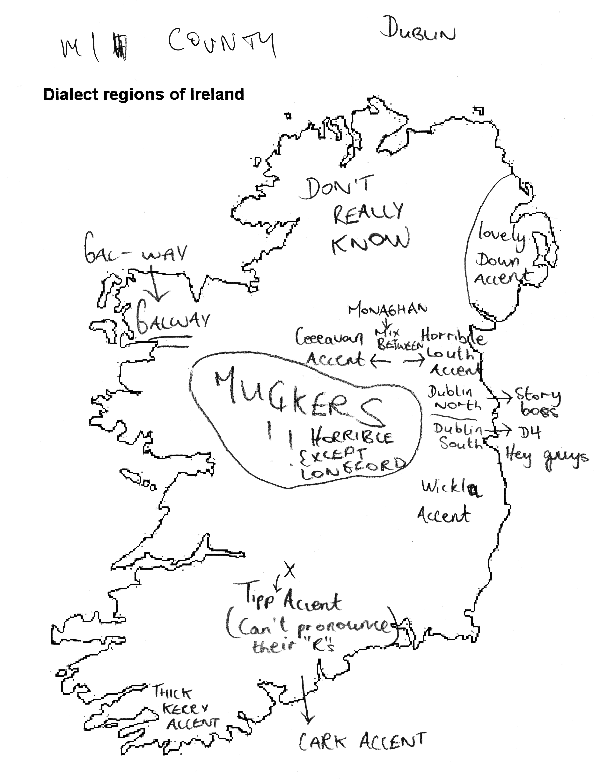 M/
COUNTY
DUBLIN
Dialect regions of Ireland
DON'T
REALLY
KNOW
lovely
Down
Accent
GAL-WAY
GALWAY
MONAGHAN
MIX
BETWEEN
Ceeeavan
ACCENT
Horrible
Louth
Accent
MUCKERS
!! HORRIBLE
! EXCEPT
LONGFORD
Dublin
North
Story
boss
Dublin
South
D4
Hey guys
Wickla
Accent
X
Tipp Accent
(Can't pronounce)
their "R"s
THICK
KERRY
ACCENT
CARK ACCENT